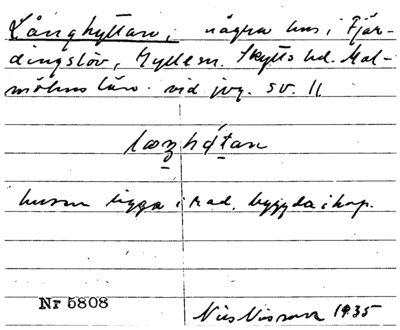 Långhyttan, några hus i Fjär-
dingslöv, Hyllesn. Skytts hd. Mal-
möhus län. vid jvg. sv. II
husen ligga i rad. byggda i hop.
Nr 5808
Nils Nilsson 1935